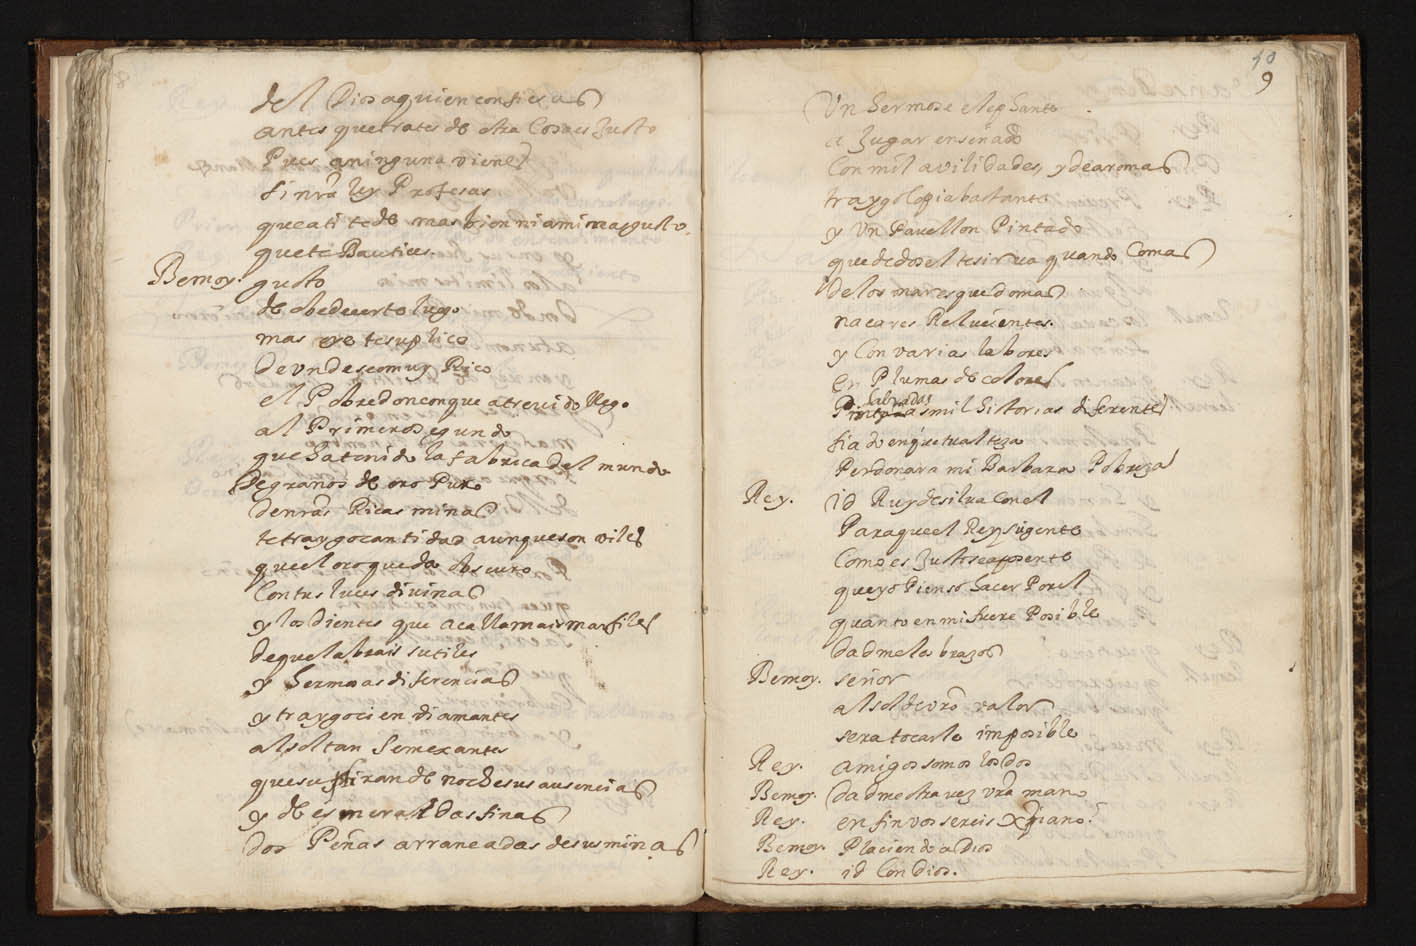 del Dios aquien confiesas
antes que trates de otra Cosa es Justo
Pues aninguna vienes
sin nrā ley Profesas
que ati te de mas bien ni ami mas gusto
que te Bautices.
Bemoy. gusto
de obedecerte luego
mas te suplico
de vn deseo muy Rico
el Pobre don con que atreuido llego
al Primero segundo
que ha tenido la fabrica del mundo
de granos de oro Puro
de nrās Ricas minas
te traygo cantidad aunque son viles
que el oro queda obscuro
Con tus luces diuinas
y los dientes que aca llamais marfiles
de que labrais sutiles
y hermosas diferencias
y traygo cien diamantes
al sol tan semexantes
que supliran de noche sus ausencias
y de esmeraldas finas
dos Peñas arrancadas de sus minas
10
9
Vn hermoso elephante
a Jugar enseñado
Con mil avilidades, y de aromas
traygo Copia bastante
y Vn Pauellon Pintado
que de dosel te sirua quando Comas
de los mares que domas
nacares Reluцientes.
y Con varias labores
en Plumas de colores
labradas
mil historias diferentes
fiado en que tu alteza
Perdonara mi Barbara Pobreza
Rey. id Ruy de silua Con el
Para que el Rey su gente
Como es Justo se aposente
que yo Pienso hacer Por el
quanto en mi fuere Posible
dadme los brazos
Bemoy. señor
al sol de vrō valor
sera tocarle imposible
Rey. amigos somos los dos
Bemoy. dadme otra vez vrā mano
Rey. en fin vos sereis Xpiano?
Bemoy. Placiendo a Dios
Rey. id Con Dios.